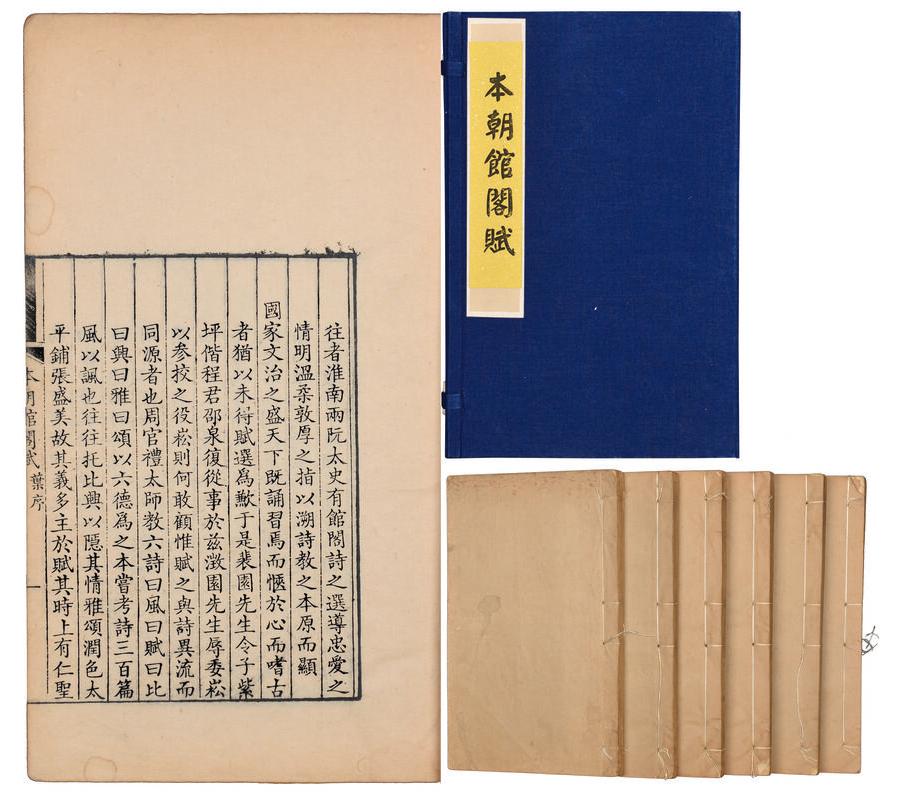 往者淮南兩阮太史有館閣詩之選導忠愛之
情明溫柔敦厚之指以溯詩教之本原而顯
國家文治之盛天下既誦習焉而愜於心而嗜古
者猶以未得賦選爲歉于是裴園先生令子紫
坪偕程君邵泉復從事於茲澂園先生辱委崧
以參挍之役崧則何敢顧惟賦之與詩異流而
同源者也周官禮太師教六詩曰風曰賦曰比
曰興曰雅曰頌以六德爲之本嘗考詩三百篇
風以諷也往往托比興以隱其情雅頌潤色太
平鋪張盛美故其義多主於賦其時上有仁聖
本朝館閣賦 葉序 一
本朝館閣賦